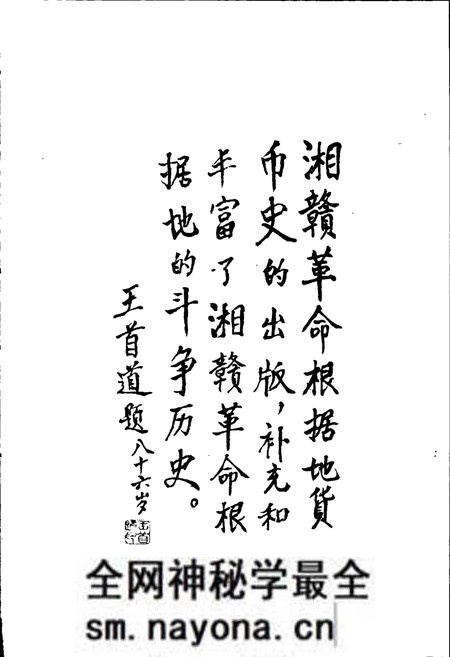 湘赣革命根据地货
币史的出版，补充和
丰富了湘赣革命根
据地的斗争历史。
王首道题八十六岁
全网神秘学最全
sm.nayona.cn